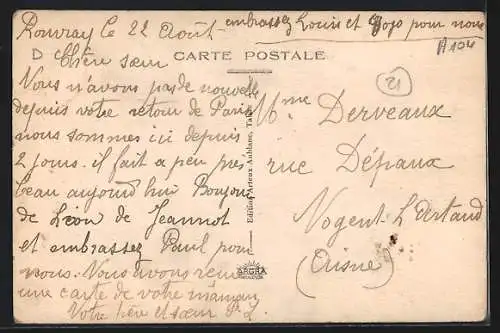 Rouvray le 22 Août
embrassez Louis et Gogo pour nous
A 104
D Chère sœur
CARTE POSTALE
21
Vous n'avons pas de nouvelle
depuis votre retour de Paris
nous sommes ici depuis
2 jours. il fait a peu près
beau aujourd'hui Bonjour
de Léon de Jeannot
et embrassez Paul pour
nous. Nous avons remis
une carte de votre maman
Votre père et sœur
Edition Arteux Aublanc,
Mme Derveaux
rue Dépaux
Nogent L'Artaud
(Aisne)